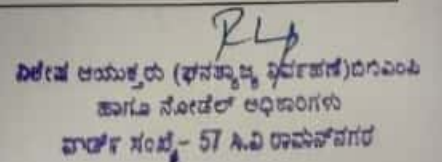 ವಿಶೇಷ ಆಯುಕ್ತರು (ಘನತ್ಯಾಜ್ಯ ನಿರ್ವಹಣೆ)ಬಿಬಿಎಂಪಿ
ಹಾಗೂ ನೋಡೆಲ್ ಅಧಿಕಾರಿಗಳು
ವಾರ್ಡ್ ಸಂಖ್ಯೆ - 57 ಸಿ.ವಿ ರಾಮನ್ ನಗರ